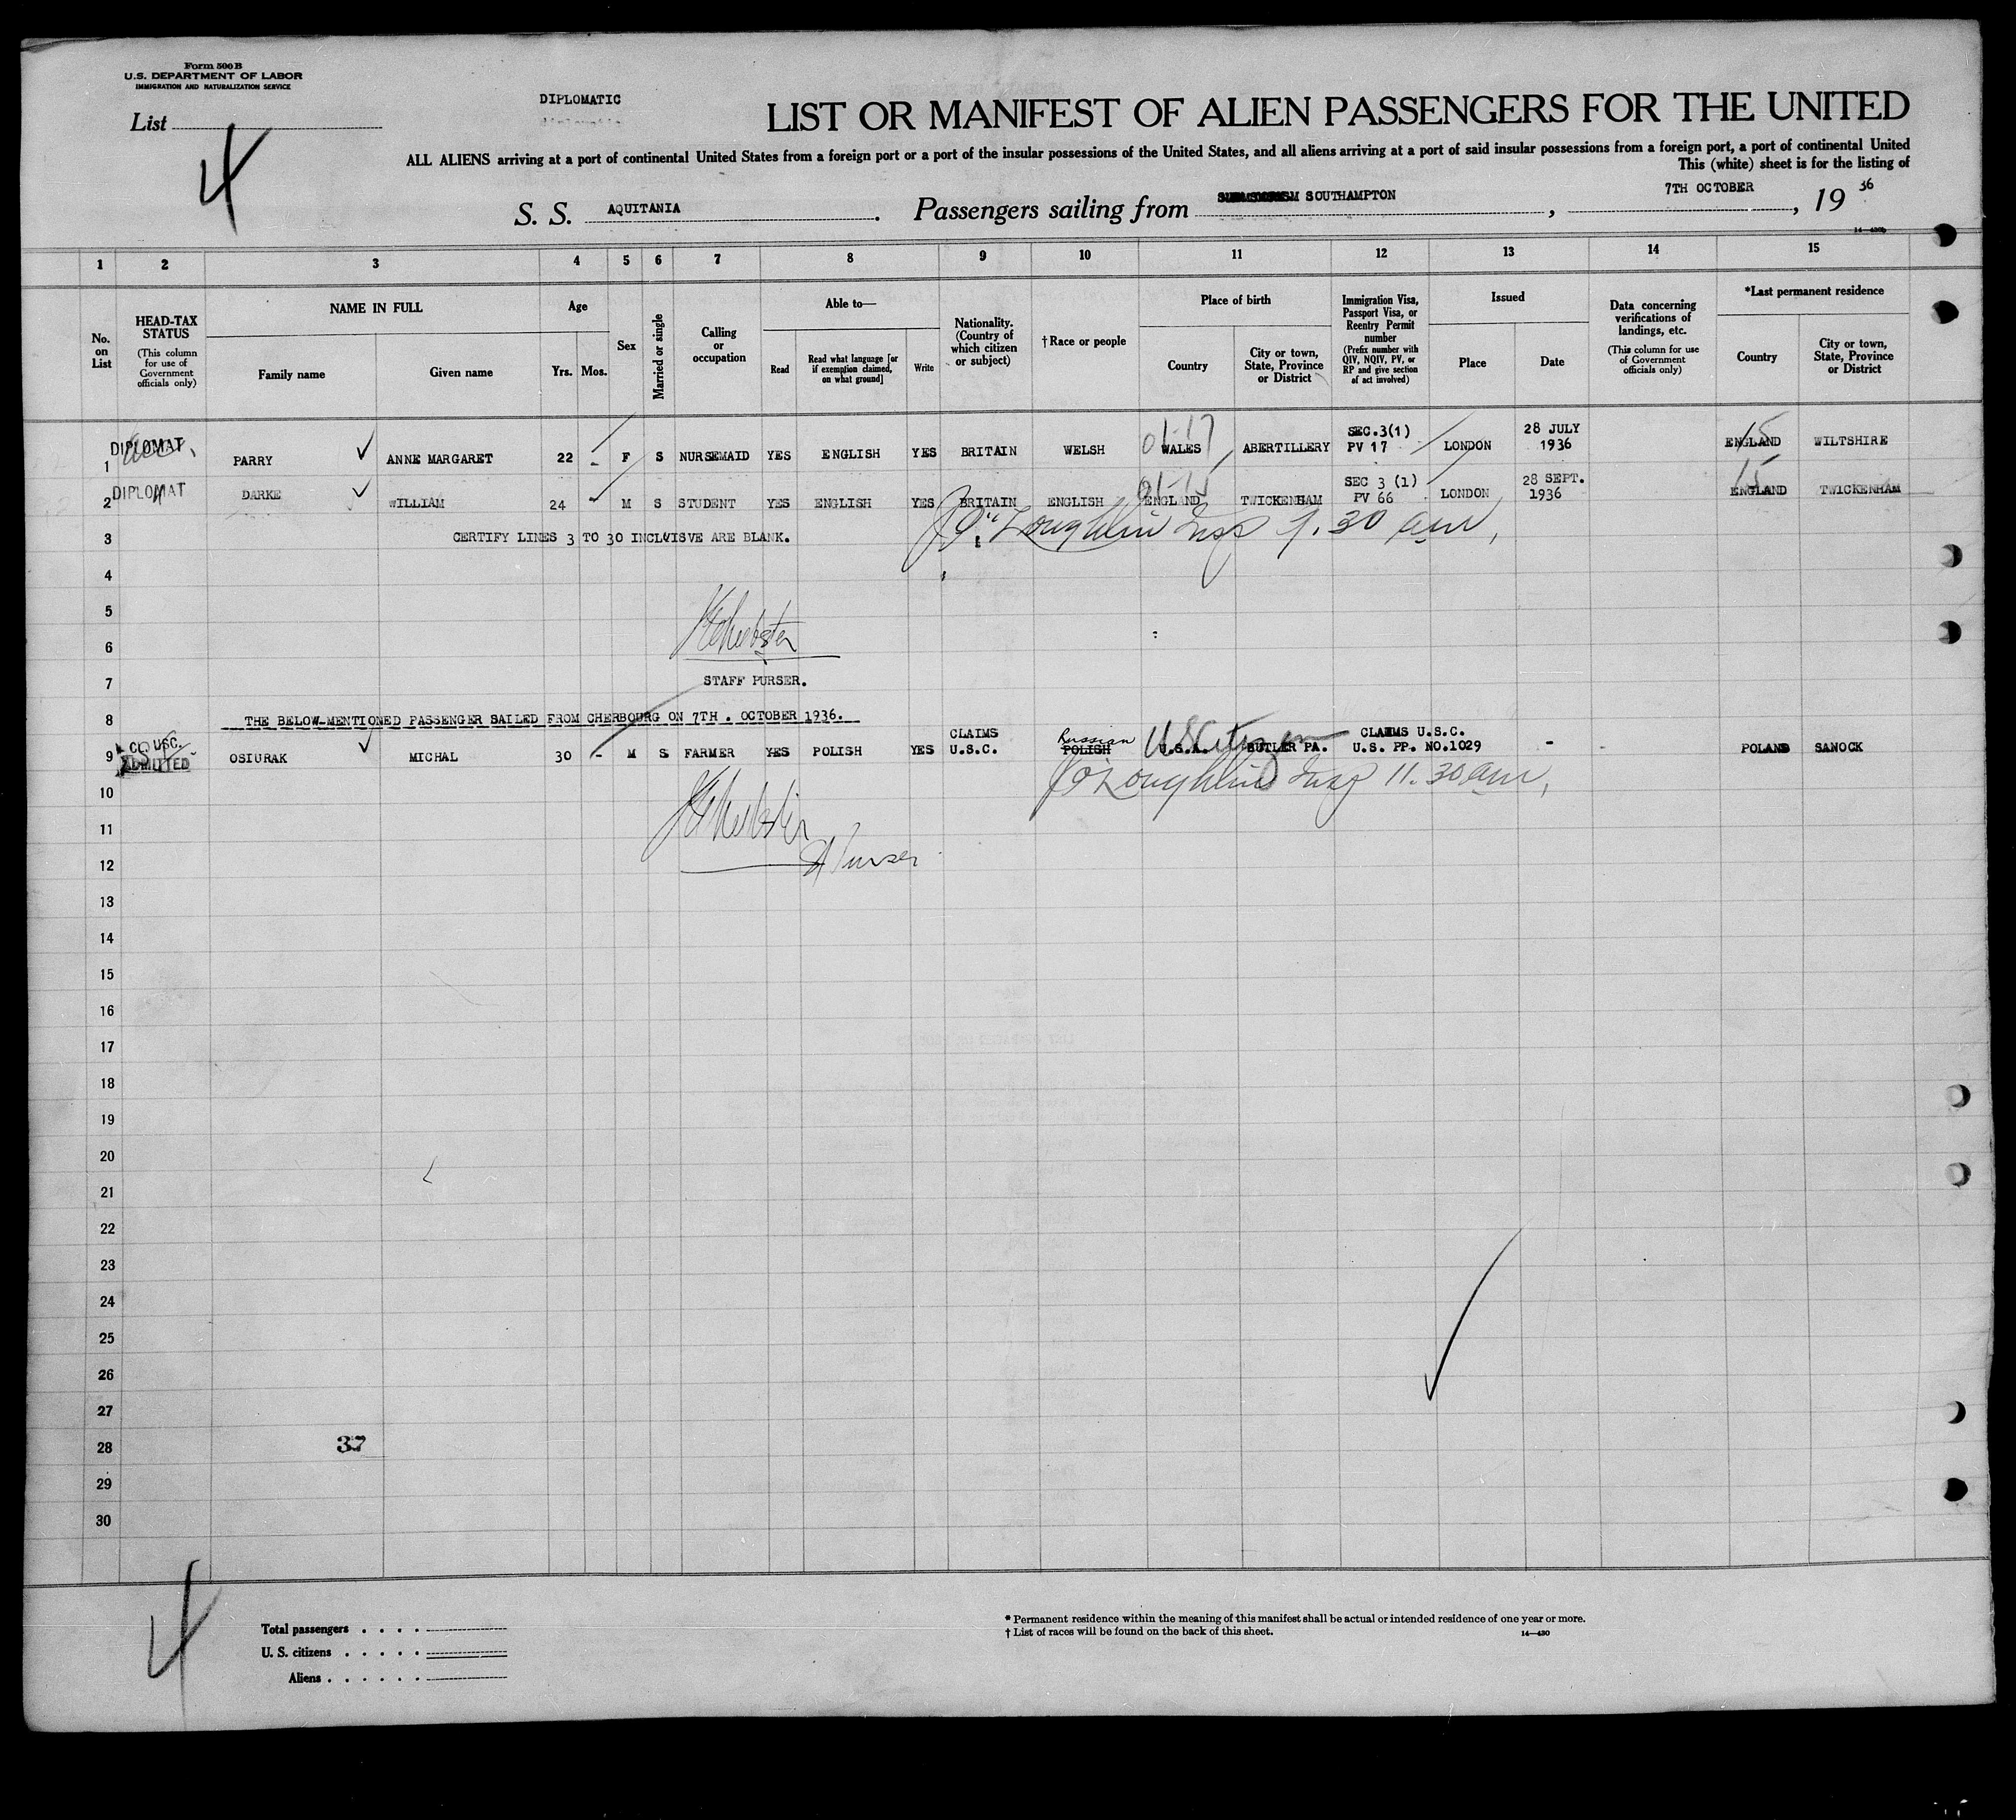 Form 500 B
U.S. DEPARTMENT OF LABOR
IMMIGRATION AND NATURALIZATION SERVICE
List
4
DIPLOMATIC
LIST OR MANIFEST OF ALIEN PASSENGERS FOR THE UNITED
ALL ALIENS arriving at a port of continental United States from a foreign port or a port of the insular possessions of the United States, and all aliens arriving at a port of said insular possessions from a foreign port, a port of continental United
This (white) sheet is for the listing of
S. S. AQUITANIA. Passengers sailing from SOUTHAMPTON, 7TH OCTOBER, 19 36
14—430b
1 2 3 4 5 6 7 8 9 10 11 12 13 14 15
No. on List
HEAD-TAX STATUS
(This column for use of Government officials only)
NAME IN FULL
Family name
Given name
Age
Yrs.
Mos.
Sex
Married or single
Calling or occupation
Able to—
Read
Read what language [or if exemption claimed, on what ground]
Write
Nationality. (Country of which citizen or subject)
†Race or people
Place of birth
Country
City or town, State, Province or District
Immigration Visa, Passport Visa, or Reentry Permit number
(Prefix number with QIV, NQIV, PV, or RP and give section of act involved)
Issued
Place
Date
Data concerning verifications of landings, etc.
(This column for use of Government officials only)
*Last permanent residence
Country
City or town, State, Province or District
1 DIPLOMAT PARRY ANNE MARGARET 22 - F S NURSEMAID YES ENGLISH YES BRITAIN WELSH 01-17 WALES ABERTILLERY SEC.3(1) PV 17 LONDON 28 JULY 1936 ENGLAND 15 WILTSHIRE
2 DIPLOMAT DARKE WILLIAM 24 - M S STUDENT YES ENGLISH YES BRITAIN ENGLISH 01-15 ENGLAND TWICKENHAM SEC 3 (1) PV 66 LONDON 28 SEPT. 1936 ENGLAND 15 TWICKENHAM
3 CERTIFY LINES 3 TO 30 INCLUISVE ARE BLANK.
J O'Loughlin Insp 9.30 am,
4
5
6
7 STAFF PURSER.
8 THE BELOW-MENTIONED PASSENGER SAILED FROM CHERBOURG ON 7TH. OCTOBER 1936.
9 CL USC. ADMITTED OSIURAK MICHAL 30 - M S FARMER YES POLISH YES CLAIMS U.S.C. Russian POLISH U.S.A. US Citizen BUTLER PA. CLAIMS U.S.C. U.S. PP. NO.1029 - POLAND SANOCK
J O'Loughlin Insp 11.30 am,
10
11
12 Purser
13
14
15
16
17
18
19
20
21
22
23
24
25
26
27
28 37
29
30
4
Total passengers
U. S. citizens
Aliens
* Permanent residence within the meaning of this manifest shall be actual or intended residence of one year or more.
† List of races will be found on the back of this sheet.
14—430